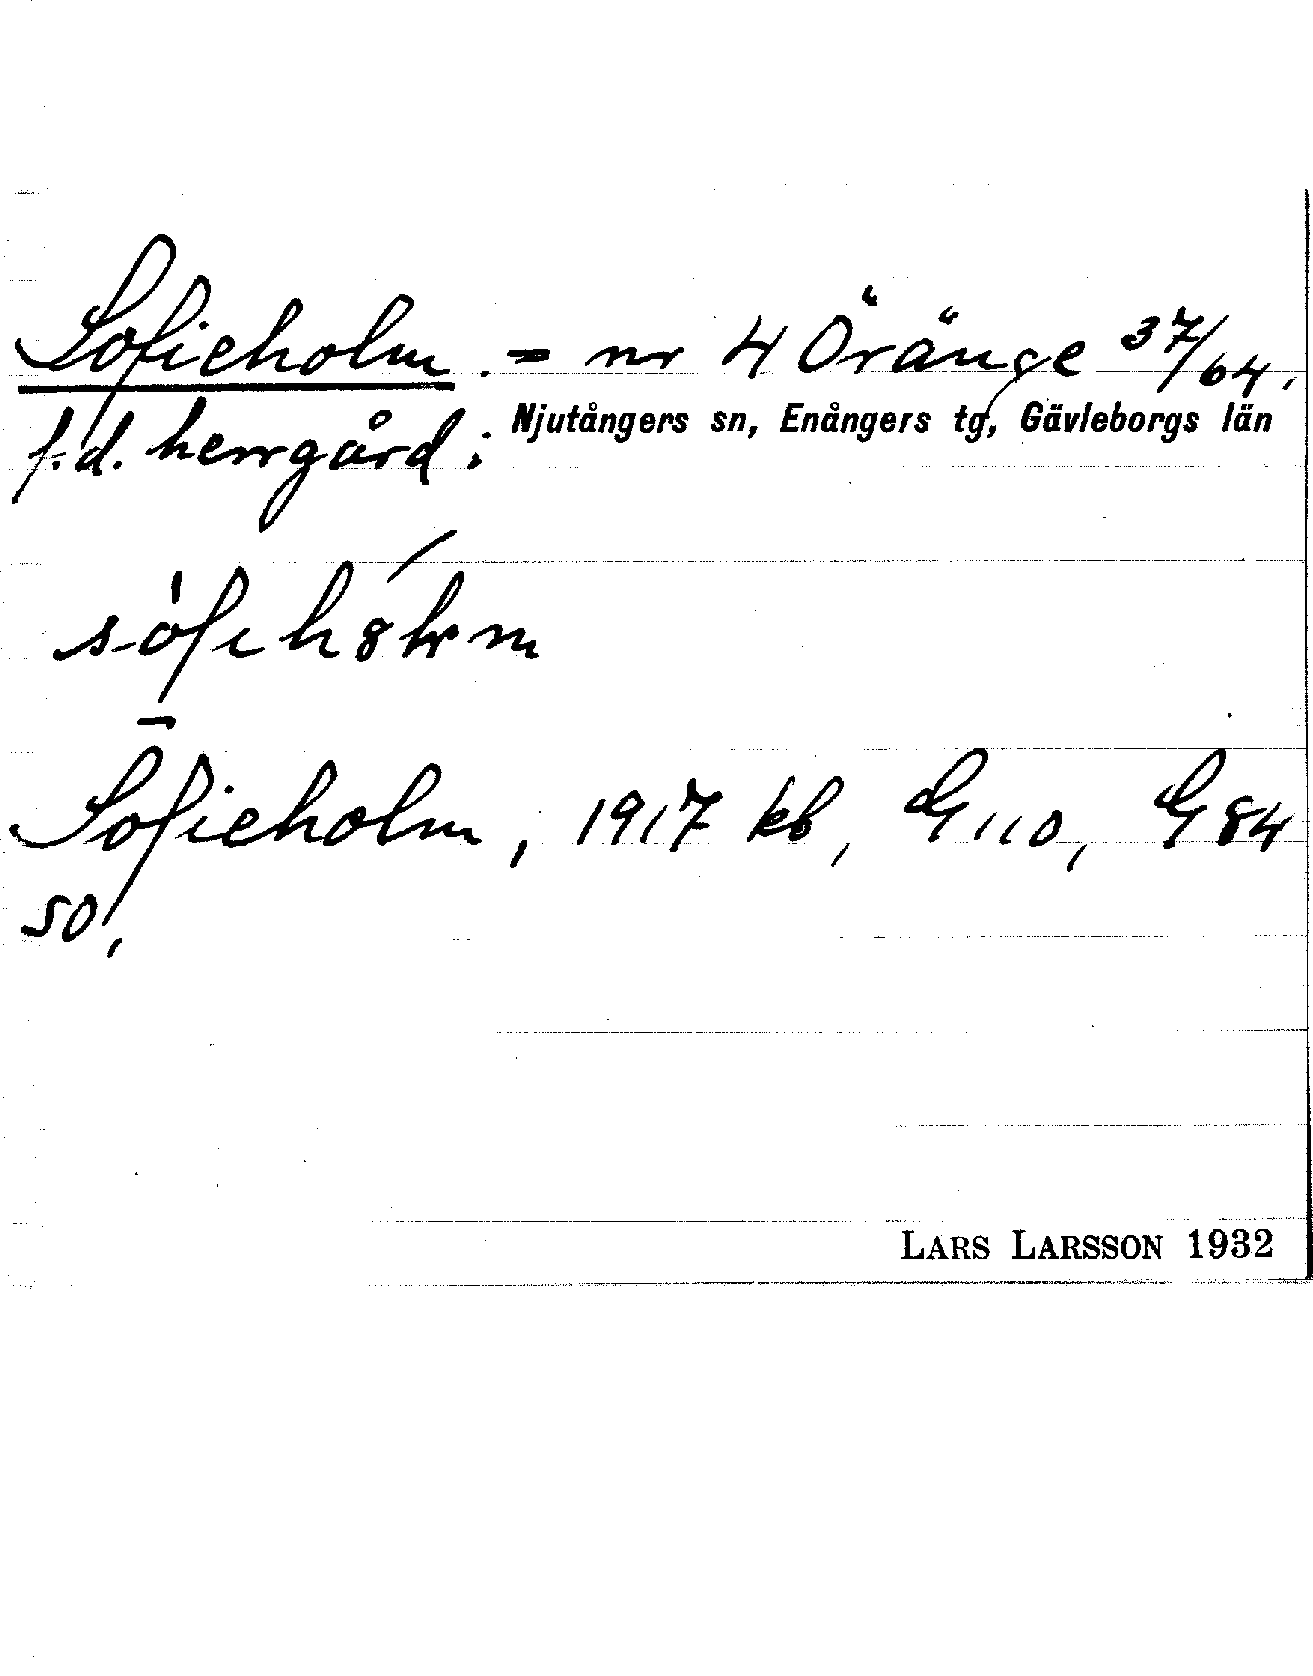 Sofieholm. = nr 4 Öränge 37/64.
Njutångers sn, Enångers tg, Gävleborgs län
f.d. herrgård:
Sofieholm, 1917 kb, G 110, G 84
50,
LARS LARSSON 1932